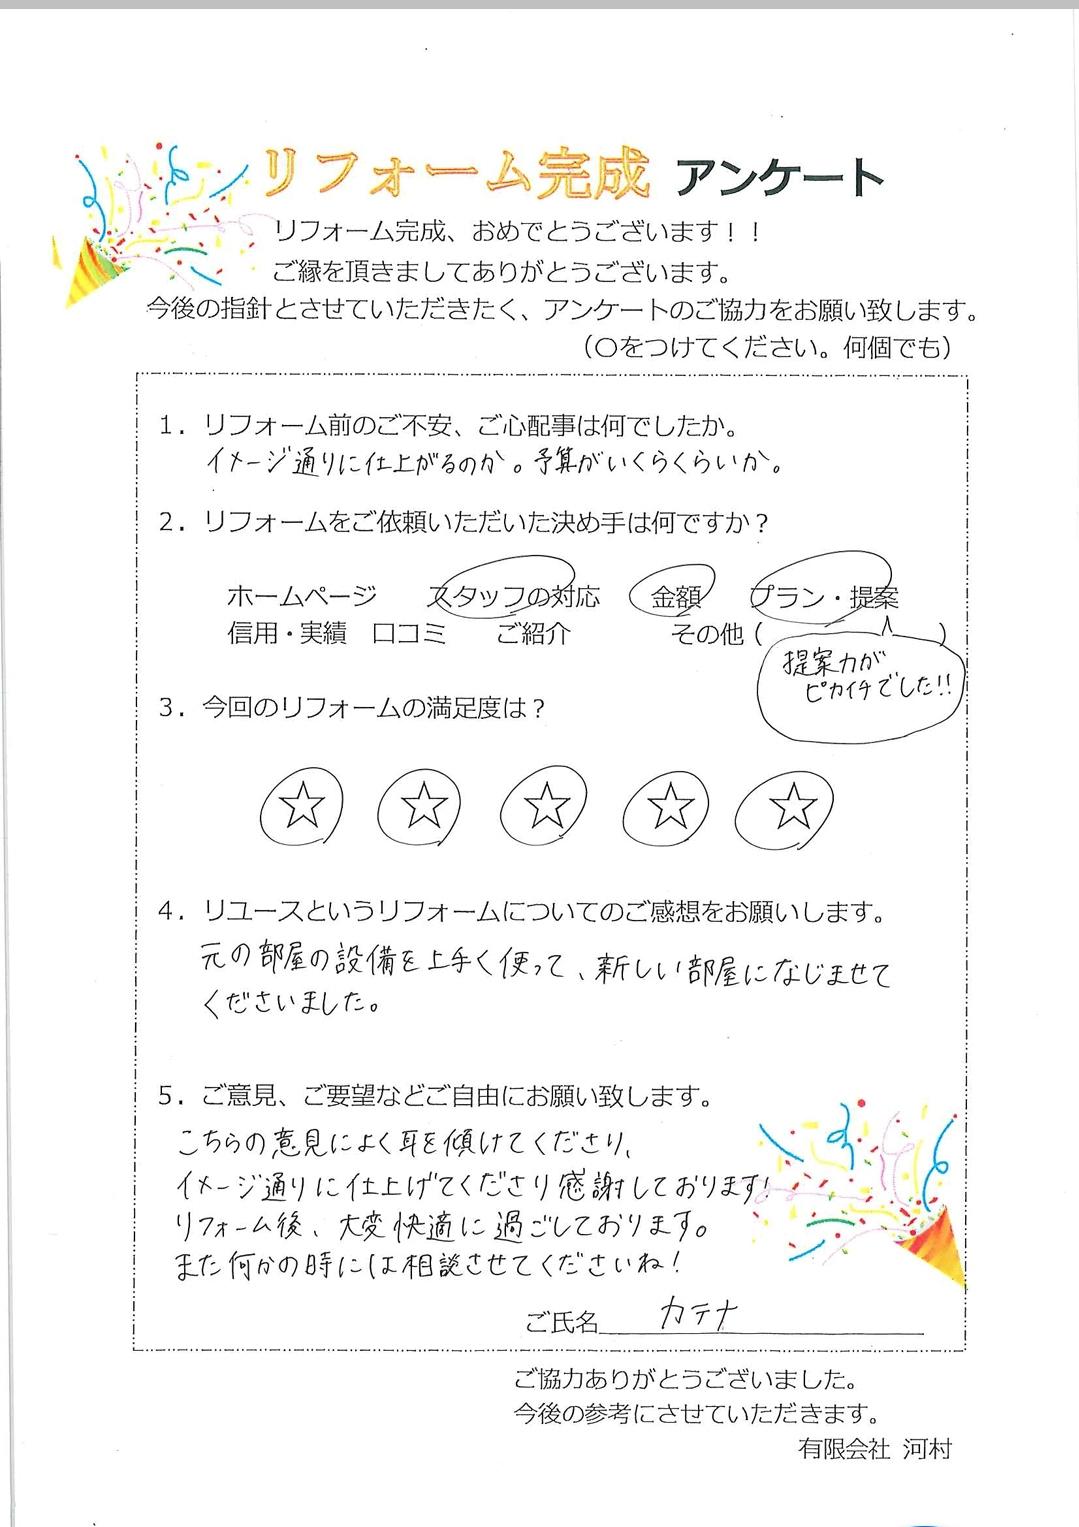 リフォーム完成 アンケート
リフォーム完成、おめでとうございます！！
ご縁を頂きましてありがとうございます。
今後の指針とさせていただきたく、アンケートのご協力をお願い致します。
（○をつけてください。何個でも）
1．リフォーム前のご不安、ご心配事は何でしたか。
イメージ通りに仕上がるのか。予算がいくらくらいか。
2．リフォームをご依頼いただいた決め手は何ですか？
ホームページ スタッフの対応 金額 プラン・提案
信用・実績 口コミ ご紹介 その他（ ）
提案力が
ピカイチでした!!
3．今回のリフォームの満足度は？
☆ ☆ ☆ ☆ ☆
4．リユースというリフォームについてのご感想をお願いします。
元の部屋の設備を上手く使って、新しい部屋になじませて
くださいました。
5．ご意見、ご要望などご自由にお願い致します。
こちらの意見によく耳を傾けてくださり、
イメージ通りに仕上げてくださり感謝しております!
リフォーム後、大変快適に過ごしております。
また何かの時には相談させてくださいね!
ご氏名 カテナ
ご協力ありがとうございました。
今後の参考にさせていただきます。
有限会社 河村